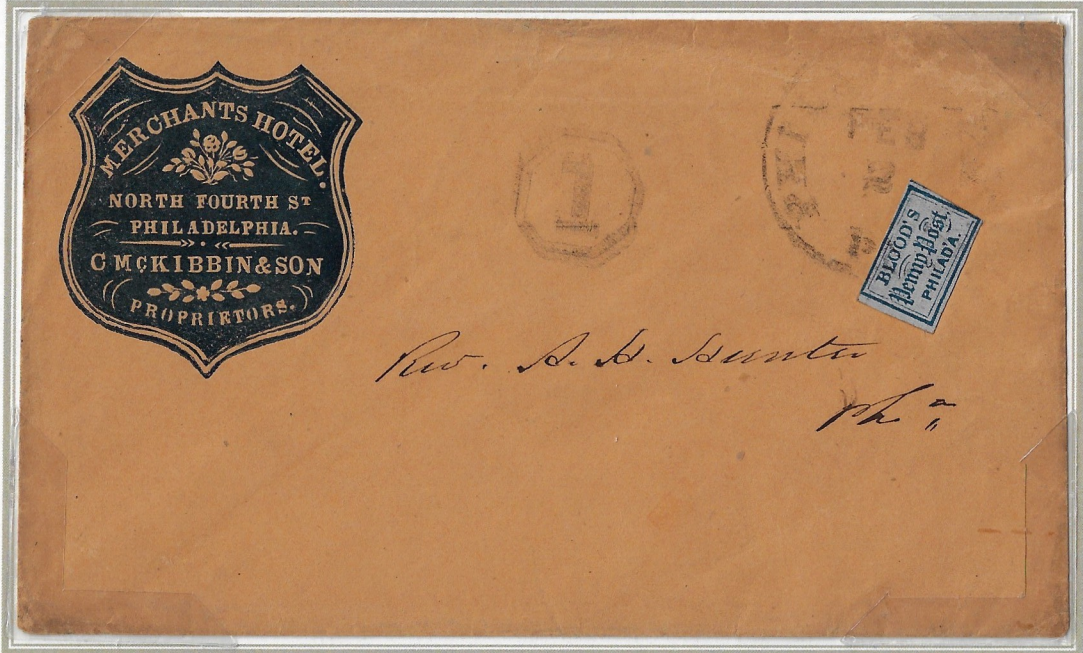 MERCHANTS HOTEL.
NORTH FOURTH ST
PHILADELPHIA.
C McKIBBIN & SON
PROPRIETORS.
1
FEB
BLOOD'S
Penny Post
PHILAD'A.
Rev. A. H. Hunter
Pha